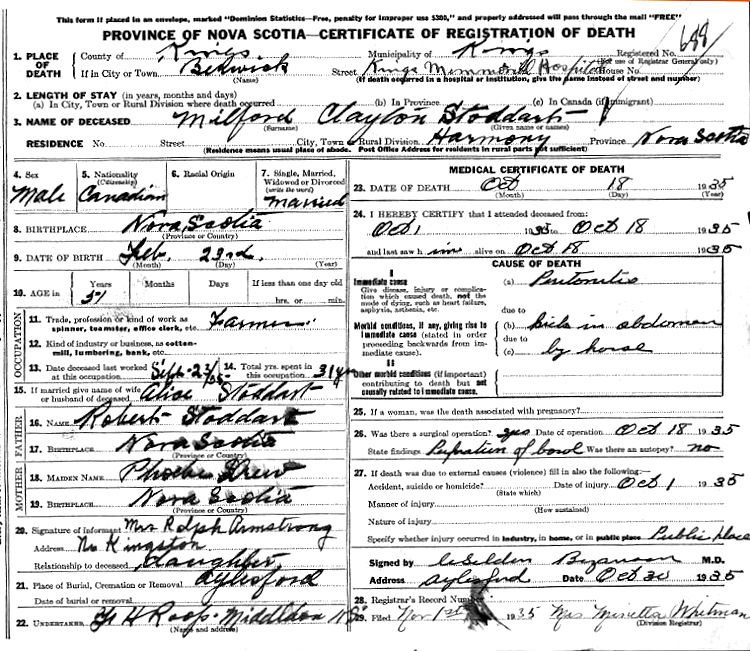 This form if placed in an envelope, marked "Dominion Statistics—Free, penalty for improper use $300," and properly addressed will pass through the mail "FREE"
PROVINCE OF NOVA SCOTIA—CERTIFICATE OF REGISTRATION OF DEATH
1. PLACE OF DEATH County of Kings Municipality of Kings Registered No. 688
(For use of Registrar General only)
If in City or Town Berwick Street Kings Memorial Hospital House No.
(Name) (If death occurred in a hospital or institution, give the name instead of street and number)
2. LENGTH OF STAY (in years, months and days)
(a) In City, Town or Rural Division where death occurred (b) In Province (c) In Canada (if immigrant)
3. NAME OF DECEASED Milford Clayton Stoddart
(Surname) (Given name or names)
RESIDENCE No. Street City, Town or Rural Division Harmony Province Nova Scotia
(Residence means usual place of abode. Post Office Address for residents in rural parts not sufficient)
4. Sex Male
5. Nationality (Citizenship) Canadian
6. Racial Origin
7. Single, Married, Widowed or Divorced (write the word) Married
8. BIRTHPLACE Nova Scotia
(Province or Country)
9. DATE OF BIRTH Feb. 23rd.
(Month) (Day) (Year)
10. AGE in Years 51 Months Days If less than one day old
hrs. or min.
OCCUPATION
11. Trade, profession or kind of work as spinner, teamster, office clerk, etc. Farmer
12. Kind of industry or business, as cotton-mill, lumbering, bank, etc.
13. Date deceased last worked at this occupation Sept. 23/35
14. Total yrs. spent in this occupation 31 yrs
15. If married give name of wife or husband of deceased Alice Stoddart
FATHER
16. NAME Robert Stoddart
17. BIRTHPLACE Nova Scotia
(Province or Country)
MOTHER
18. MAIDEN NAME Phoebe
19. BIRTHPLACE Nova Scotia
(Province or Country)
20. Signature of Informant Mrs Ralph Armstrong
Address No Kingston
Relationship to deceased daughter
21. Place of Burial, Cremation or Removal Aylesford
Date of burial or removal
22. UNDERTAKER H Roop - Middleton NS
(Name and address)
MEDICAL CERTIFICATE OF DEATH
23. DATE OF DEATH Oct 18 1935
(Month) (Day) (Year)
24. I HEREBY CERTIFY that I attended deceased from:
Oct 1 1935 to Oct 18 1935
and last saw him alive on Oct 18 1935
CAUSE OF DEATH
I
Immediate cause
Give disease, injury or complication which caused death, not the mode of dying, such as heart failure, asphyxia, asthenia, etc.
(a) Peritonitis
due to
Morbid conditions, if any, giving rise to immediate cause (stated in order proceeding backwards from immediate cause).
(b) kick in abdomen
due to
(c) by horse
II
Other morbid conditions (if important) contributing to death but not causally related to immediate cause.
25. If a woman, was the death associated with pregnancy?
26. Was there a surgical operation? yes Date of operation Oct 18 1935
State findings Perforation of bowel Was there an autopsy? no
27. If death was due to external causes (violence) fill in also the following:—
Accident, suicide or homicide? Date of injury Oct 1 1935
(State which)
Manner of injury
(How sustained)
Nature of injury
Specify whether injury occurred in industry, in home, or in public place Public place
Signed by M.D.
Address Aylesford Date Oct 30 1935
28. Registrar's Record Number
29. Filed Nov 1st 1935 Mrs Minetta Whitman
(Division Registrar)